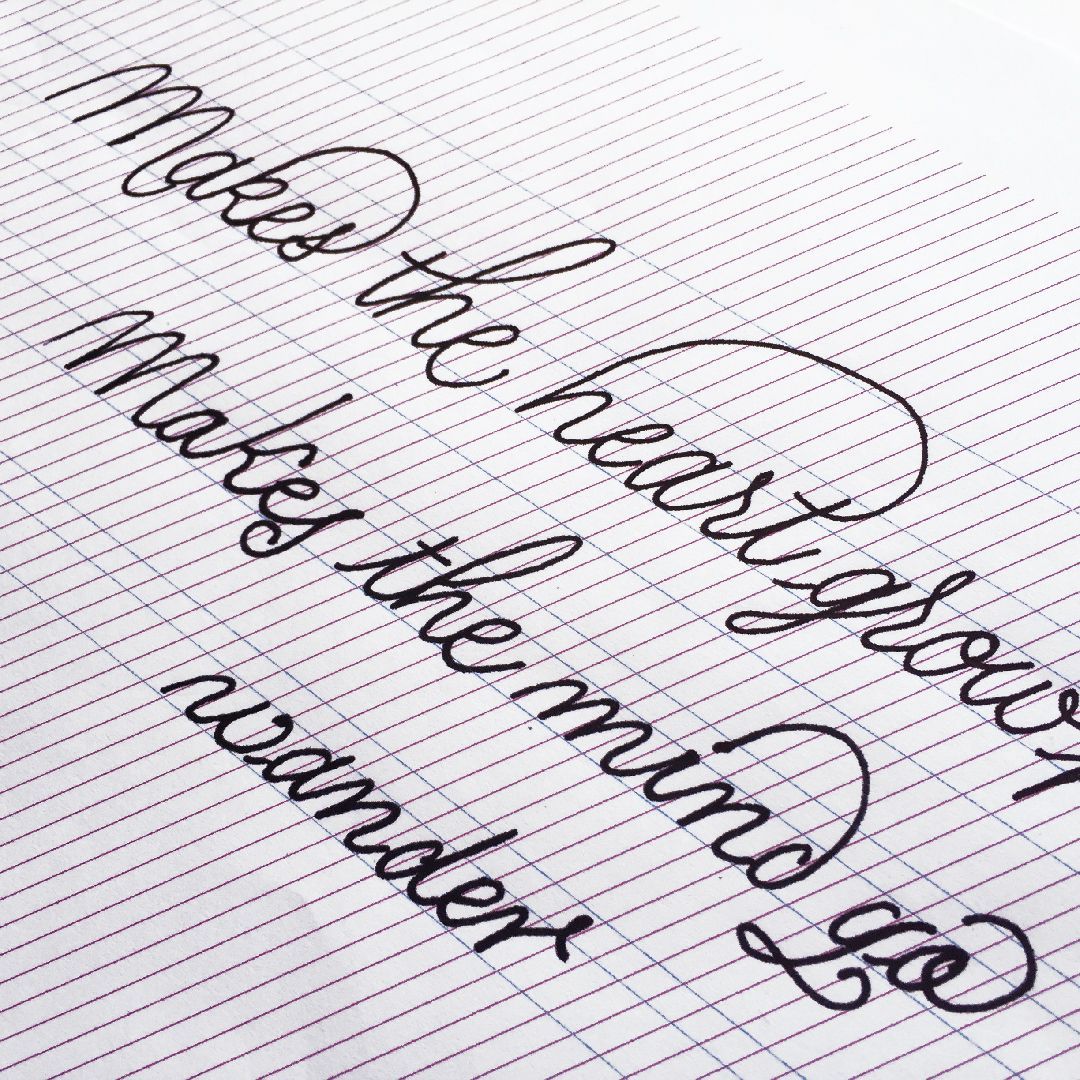 Makes the heart grow
Makes the mind go
wander